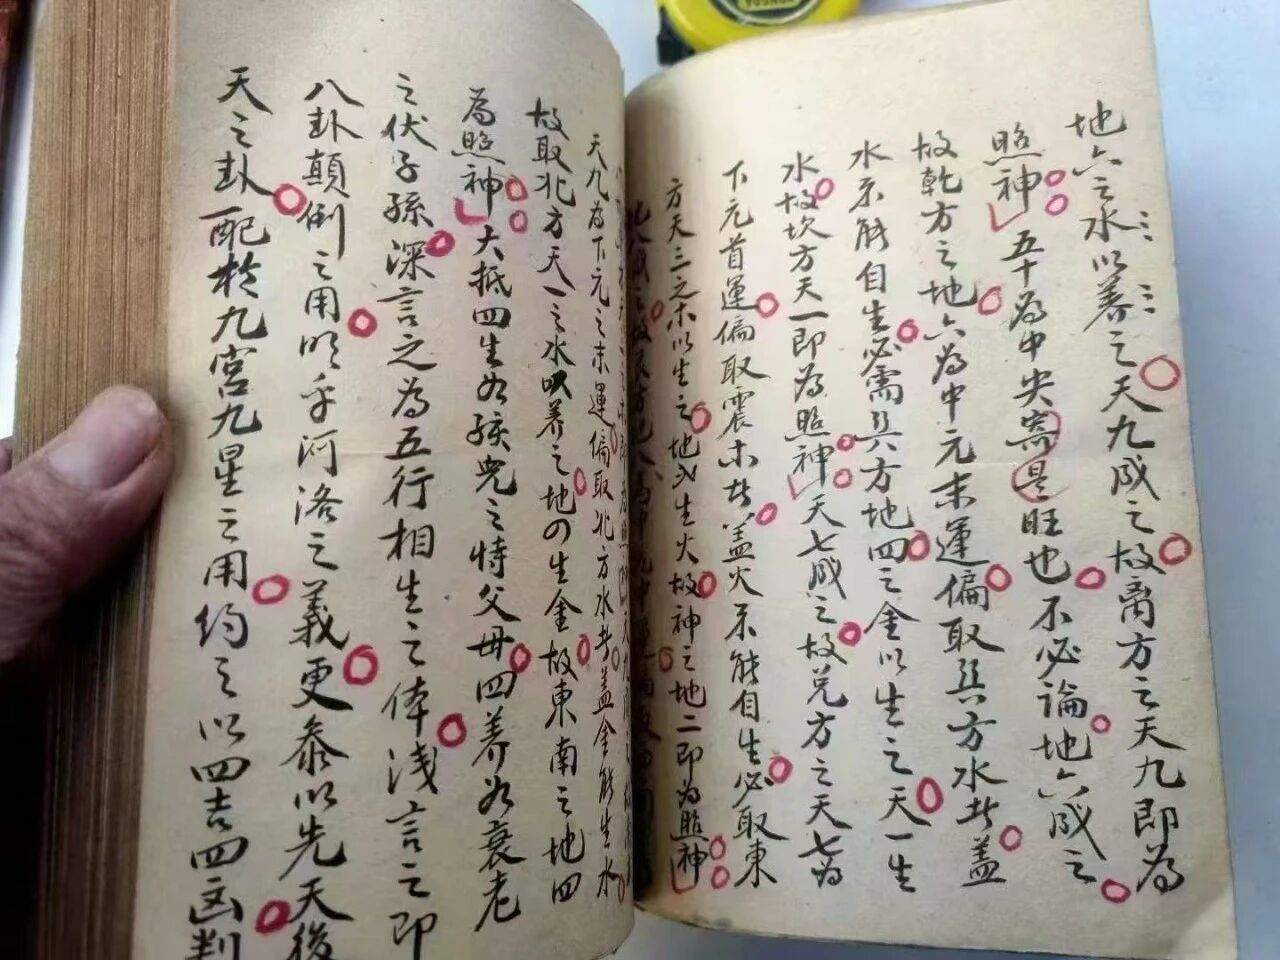 地六之水以養之天九成之故离方之天九即為
照神五十為中央寄是旺也不必論地六成之
故乾方之地六為中元末運偏取兑方水者盖
水不能自生必需兑方地四之金以生之天一生
水故坎方天一即為照神天七成之故兑方之天七為
下元首運偏取震木者盖火不能自生必取東
方天三之木以生之地二生火故神之地二即為照神
天九為下元之末運偏取北方水者盖金能生水
故取北方天一之水以養之地四生金故東南之地四
為照神大抵四生如孩兒之恃父母四養如衰老
之伏子孫深言之為五行相生之体浅言之即
八卦顛倒之用明乎河洛之義更参以先天後
天之卦配於九宫九星之用约之以四吉四凶判